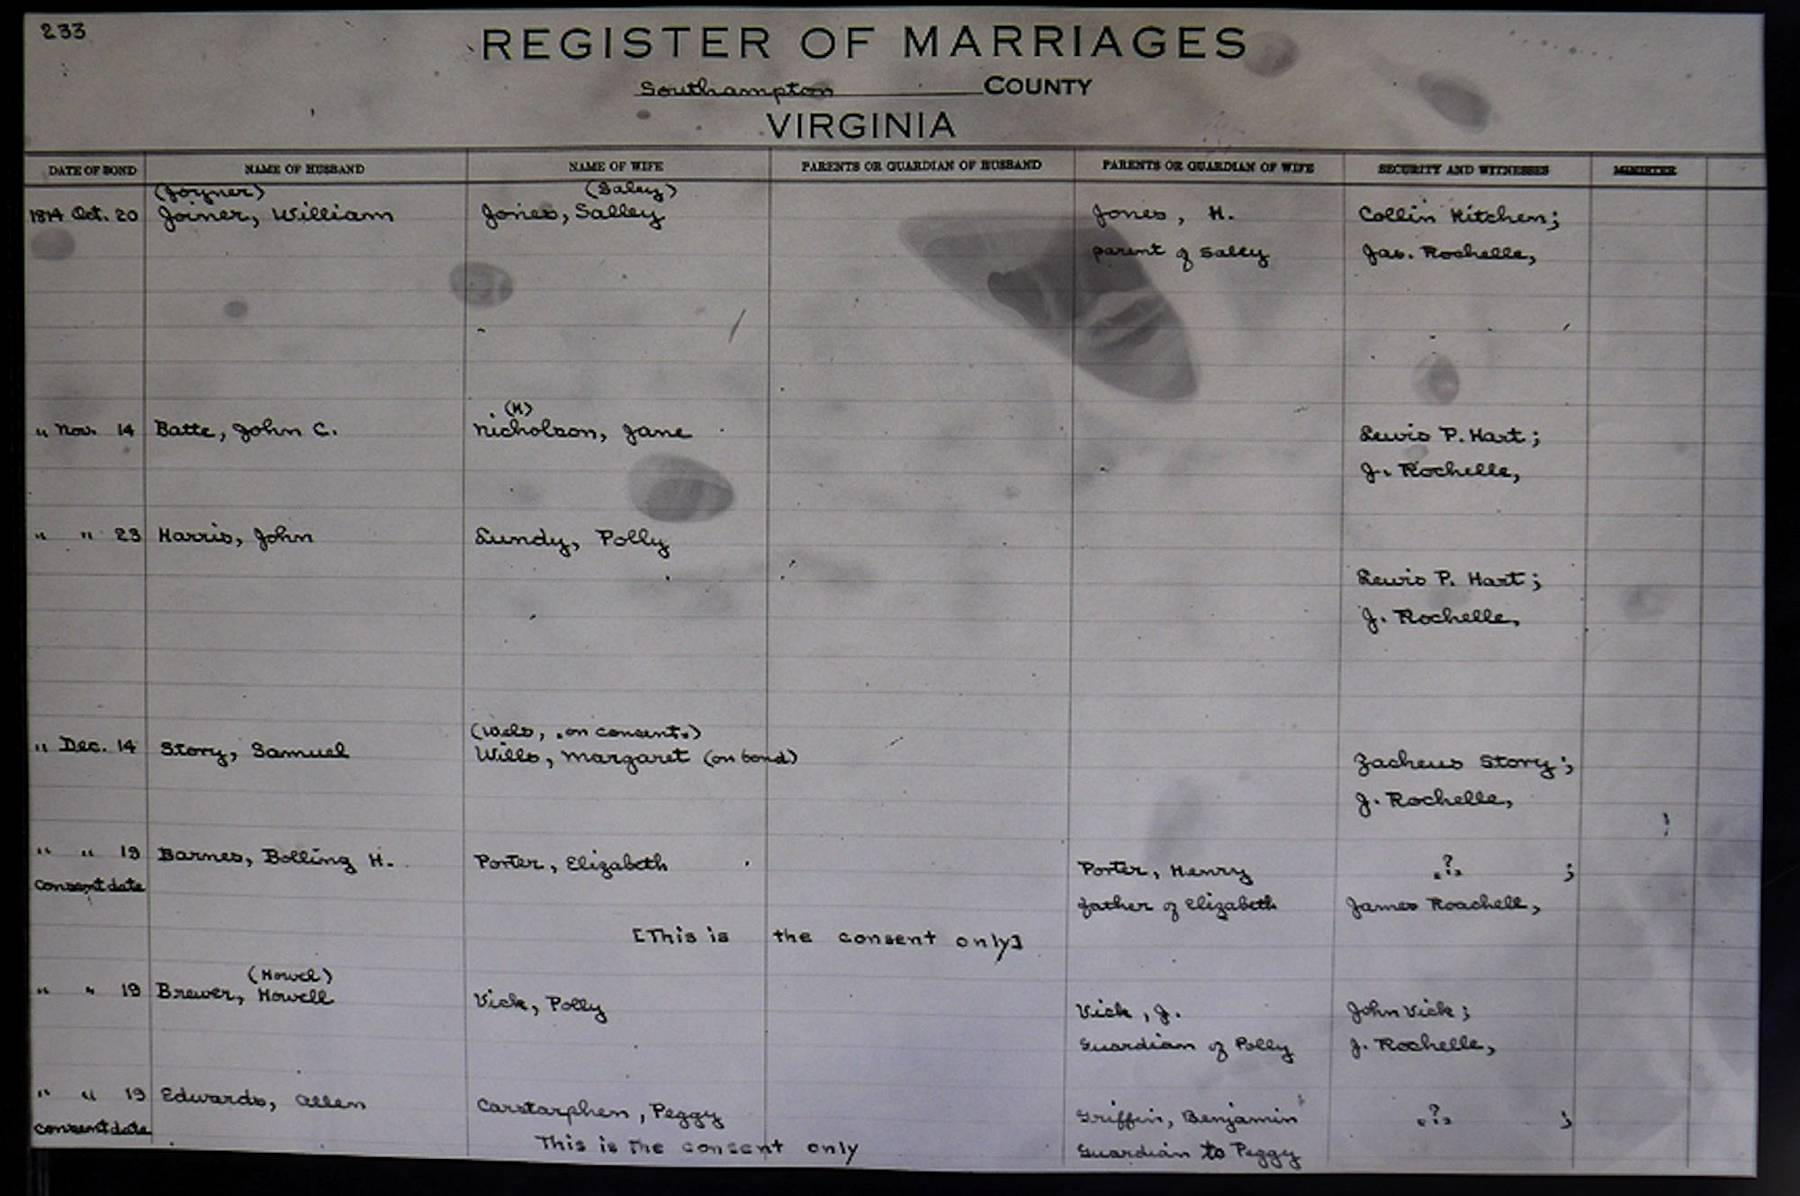 233
REGISTER OF MARRIAGES
Southampton COUNTY
VIRGINIA
DATE OF BOND NAME OF HUSBAND NAME OF WIFE PARENTS OR GUARDIAN OF HUSBAND PARENTS OR GUARDIAN OF WIFE SECURITY AND WITNESSES MINISTER
(Joyner) (Saley)
1814 Oct. 20 Joiner, William Jones, Salley Jones, H. Collin Kitchen;
parent of Salley Jas. Rochelle,
(H)
" Nov. 14 Batte, John C. Nicholson, Jane Lewis P. Hart;
J. Rochelle,
" " 23 Harris, John Lundy, Polly
Lewis P. Hart;
J. Rochelle,
(Wels, on consent.)
" Dec. 14 Story, Samuel Wills, Margaret (on bond) Zacheus Story;
J. Rochelle,
" " 19 Barnes, Bolling H. Porter, Elizabeth Porter, Henry "?" ;
consent date father of Elizabeth James Roachell,
[This is the consent only]
(Howel)
" " 19 Brewer, Howell Vick, Polly Vick, J. John Vick;
Guardian of Polly J. Rochelle,
" " 19 Edwards, Allen Carstarphen, Peggy Griffin, Benjamin "?" ;
consent date This is the consent only Guardian to Peggy